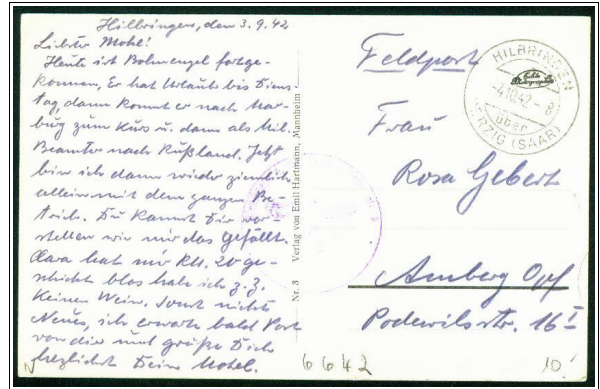 Hilbringen, den 3.9.42
Liebster Mohel!
Heute ist Bohnengel fortge-
kommen, Er hat Urlaub bis Diens-
tag, dann kommt er nach Mar-
burg zum Kurs u. dann als Mil.
Beamter nach Rußland. Jetzt
bin ich dann wieder ziemlich
allein mit dem ganzen Be-
trieb. Du kannst Dir vor-
stellen wie mir das gefällt.
Klara hat mir RM. 20 ge-
schickt blos hab ich z. Z.
keinen Wein. Sonst nichts
Neues, ich erwarte bald Post
von dir und grüße Dich
herzlichst Deine Mohel.
Nr. 3 Verlag von Emil Hartmann, Mannheim
Feldpost
HILBRINGEN
-4.10.42-8
über
MERZIG (SAAR)
Frau
Rosa Gebert
Amberg Opf
Podewilsstr. 16 I
N
6642
10.